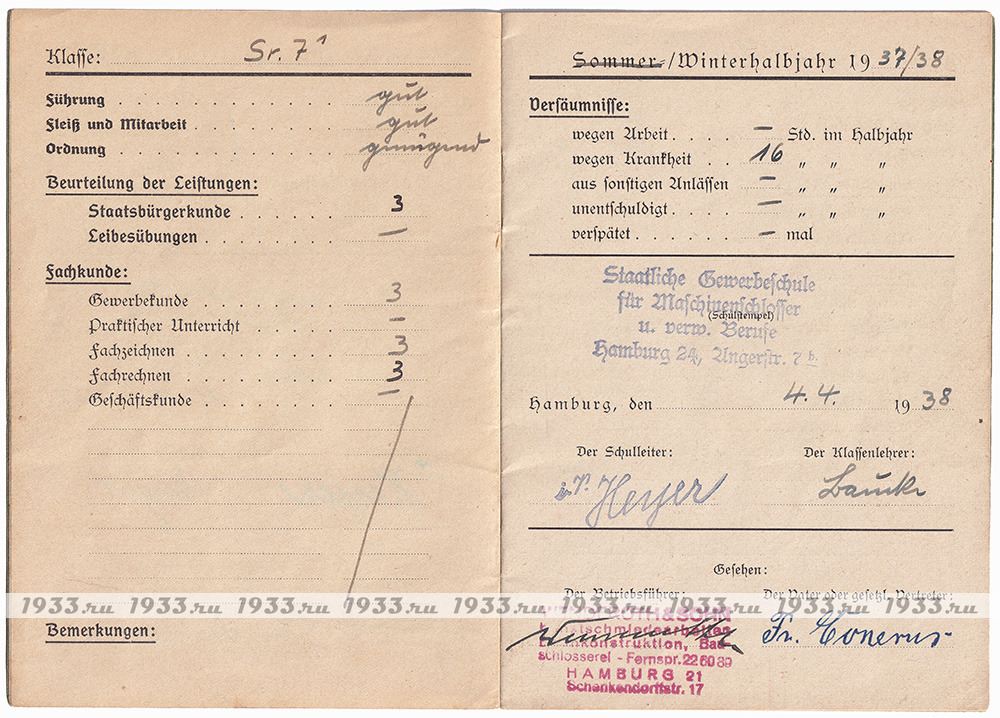 Klasse: Sr. 7¹
Führung . . . . . . . . . . . . gut
Fleiß und Mitarbeit . . . . . . . . gut
Ordnung . . . . . . . . . . . . genügend
Beurteilung der Leistungen:
Staatsbürgerkunde . . . . . . . 3
Leibesübungen . . . . . . . . . —
Fachkunde:
Gewerbekunde . . . . . . . . 3
Praktischer Unterricht . . . . . —
Fachzeichnen . . . . . . . . . 3
Fachrechnen . . . . . . . . . 3
Geschäftskunde . . . . . . . . —
Bemerkungen:
Sommer-/Winterhalbjahr 1937/38
Versäumnisse:
wegen Arbeit . . . . — Std. im Halbjahr
wegen Krankheit . . 16 „ „ „
aus sonstigen Anlässen — „ „ „
unentschuldigt . . . . — „ „ „
verspätet . . . . . . — mal
Staatliche Gewerbeschule
für Maschinenschlosser
(Schulstempel)
u. verw. Berufe
Hamburg 24, Angerstr. 7 b.
Hamburg, den 4.4. 1938
Der Schulleiter: Der Klassenlehrer:
i.V. Heyer
Gesehen:
Der Betriebsführer: Der Vater oder gesetzl. Vertreter:
1933.ru 1933.ru 1933.ru 1933.ru 1933.ru 1933.ru 1933.ru 1933.ru 1933.ru
& SOHN
Fr. Conerus
konstruktion, Bau-
schlosserei - Fernspr. 226089
HAMBURG 21
Schenkendorffstr. 17